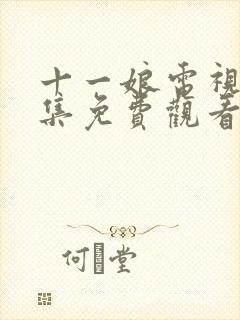 十一娘電視
集免費觀看
何 堂